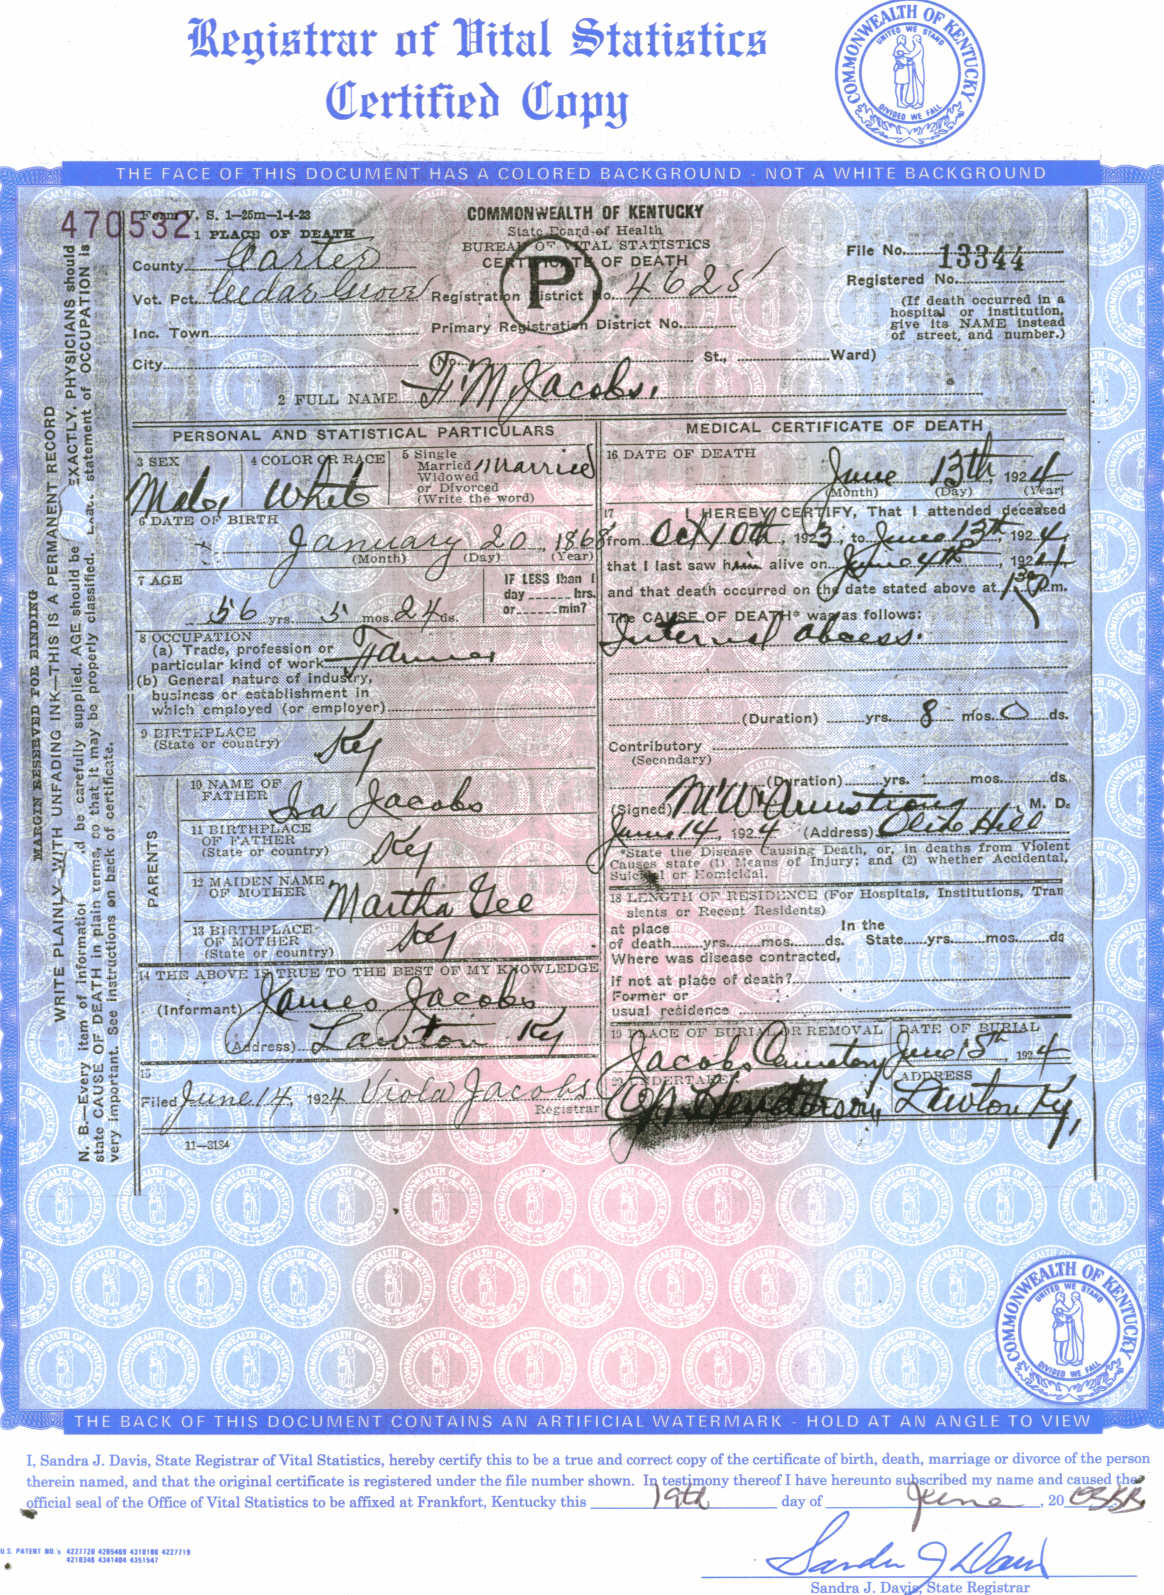 Registrar of Vital Statistics
Certified Copy
COMMONWEALTH OF KENTUCKY
UNITED WE STAND
DIVIDED WE FALL
THE FACE OF THIS DOCUMENT HAS A COLORED BACKGROUND - NOT A WHITE BACKGROUND
470532
Form V. S. 1—25m—1-4-23
1 PLACE OF DEATH
County Carter
Vot. Pct. Cedar Grove
Inc. Town
City
COMMONWEALTH OF KENTUCKY
State Board of Health
BUREAU OF VITAL STATISTICS
CERTIFICATE OF DEATH
P
Registration District No. 4625
Primary Registration District No.
File No. 13344
Registered No.
(If death occurred in a
hospital or institution,
give its NAME instead
of street, and number.)
(No. St., Ward)
2 FULL NAME F. M. Jacobs.
PERSONAL AND STATISTICAL PARTICULARS
3 SEX
Male
4 COLOR OR RACE
White
5 Single
Married
Widowed
or Divorced
(Write the word)
Married
6 DATE OF BIRTH
January 20, 1868
(Month) (Day) (Year)
7 AGE
56 yrs. 5 mos. 24 ds.
IF LESS than 1
day hrs.
or min?
8 OCCUPATION
(a) Trade, profession or
particular kind of work Farmer
(b) General nature of industry,
business or establishment in
which employed (or employer)
9 BIRTHPLACE
(State or country) Ky
PARENTS
10 NAME OF
FATHER Ira Jacobs
11 BIRTHPLACE
OF FATHER
(State or country) Ky
12 MAIDEN NAME
OF MOTHER Martha Gee
13 BIRTHPLACE
OF MOTHER
(State or country) Ky
14 THE ABOVE IS TRUE TO THE BEST OF MY KNOWLEDGE
(Informant) James Jacobs
(Address) Lawton Ky
15
Filed June 14, 1924 Viola Jacobs
Registrar
11—3184
MEDICAL CERTIFICATE OF DEATH
16 DATE OF DEATH
June 13th, 1924
(Month) (Day) (Year)
17 I HEREBY CERTIFY, That I attended deceased
from Oct 10th, 1923, to June 13th, 1924,
that I last saw him alive on June 4th, 1924
and that death occurred on the date stated above at 1 30 P.m.
The CAUSE OF DEATH* was as follows:
Internal abcess.
(Duration) yrs. 8 mos. 0 ds.
Contributory
(Secondary)
(Duration) yrs. mos. ds.
(Signed) M W Armstrong, M. D.
June 14, 1924 (Address) Olive Hill
*State the Disease Causing Death, or, in deaths from Violent
Causes state (1) Means of Injury; and (2) whether Accidental,
Suicidal or Homicidal.
18 LENGTH OF RESIDENCE (For Hospitals, Institutions, Tran
sients or Recent Residents)
at place In the
of death yrs. mos. ds. State yrs. mos. ds
Where was disease contracted,
if not at place of death?
Former or
usual residence
19 PLACE OF BURIAL OR REMOVAL
Jacobs Cemetery
DATE OF BURIAL
June 15th 1924
20 UNDERTAKER
Henderson,
ADDRESS
Lawton Ky,
MARGIN RESERVED FOR BINDING
WRITE PLAINLY WITH UNFADING INK—THIS IS A PERMANENT RECORD
N. B.—Every item of information d be carefully supplied. AGE should be EXACTLY. PHYSICIANS should
state CAUSE OF DEATH in plain terms, so that it may be properly classified. Exact statement of OCCUPATION is
very important. See instructions on back of certificate.
COMMONWEALTH OF KENTUCKY
UNITED WE STAND
DIVIDED WE FALL
THE BACK OF THIS DOCUMENT CONTAINS AN ARTIFICIAL WATERMARK - HOLD AT AN ANGLE TO VIEW
I, Sandra J. Davis, State Registrar of Vital Statistics, hereby certify this to be a true and correct copy of the certificate of birth, death, marriage or divorce of the person
therein named, and that the original certificate is registered under the file number shown. In testimony thereof I have hereunto subscribed my name and caused the
official seal of the Office of Vital Statistics to be affixed at Frankfort, Kentucky this 19th day of June, 20
U.S. PATENT NO.'s 4227720 4265469 4310180 4227719
4210346 4341404 4351547
Sandra J Davis
Sandra J. Davis, State Registrar